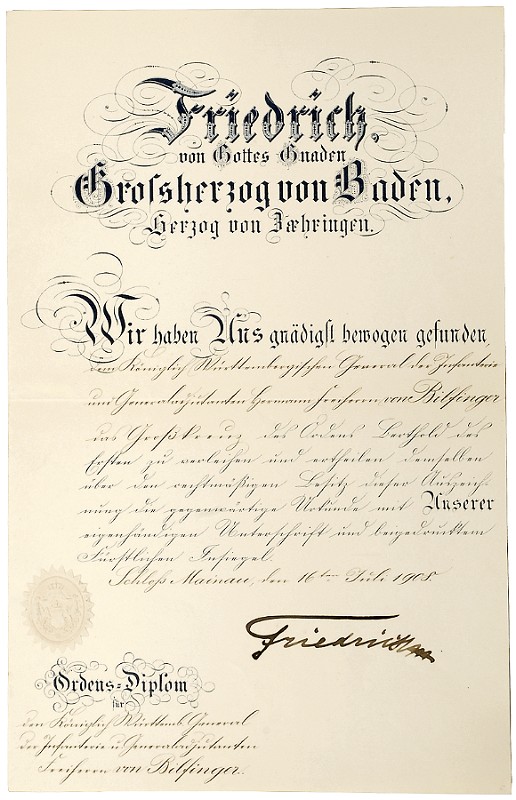 Friedrich,
von Gottes Gnaden
Großherzog von Baden,
Herzog von Zæhringen.
Wir haben Uns gnädigst bewogen gefunden,
dem Königlich Württembergischen General der Infanterie
und Generaladjutanten Hermann Freiherrn von Bilfinger
das Großkreuz des Ordens Berthold des
Ersten zu verleihen und ertheilen demselben
über den rechtmäßigen Besitz dieser Auszeich-
nung die gegenwärtige Urkunde mit Unserer
eigenhändigen Unterschrift und beigedrucktem
Fürstlichen Insiegel.
Schloß Mainau, den 16ten Juli 1905.
Friedrich
Ordens-Diplom
für
den Königlich Württemb. General
der Infanterie u. Generaladjutanten
Freiherrn von Bilfinger.